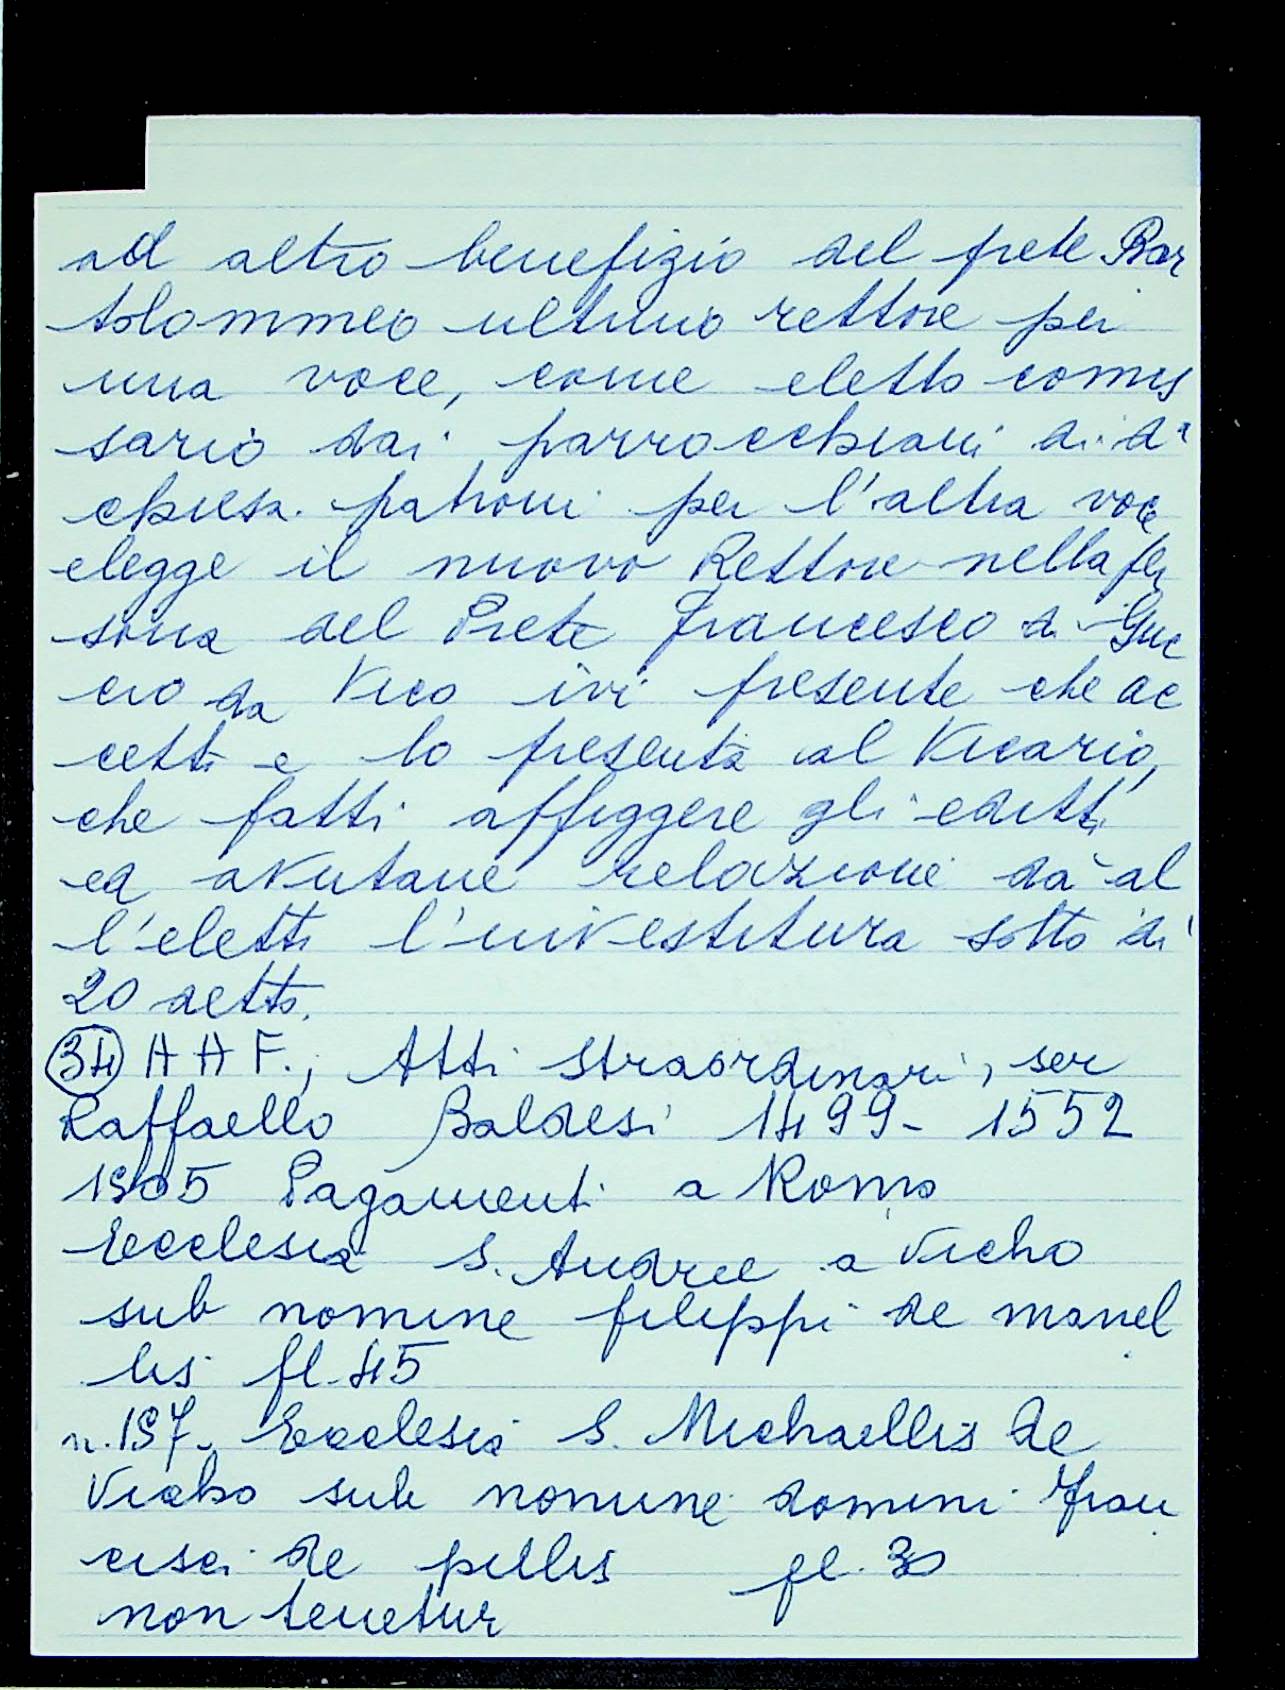 ad altro benefizio del prete Bar
tolommeo ultimo rettore per
una voce, come eletto comys
sario dai parrocchiani di dª
chiesa patroni per l'altra voce
elegge il nuovo Rettore nella per
sona del Prete Francesco di Guc
cio da Vico ivi presente che ac
cettò e lo presentà al Vicario,
che fatti affiggere gli editti
ed avutane relazione dà al
l'eletto l'investitura sotto di'
20 detto.
(34) A A F., Atti straordinari, ser
Raffaello Baldesi 1499- 1552
1505 Pagamenti a Roma
Ecclesia S. Andree a Vicho
sub nomine filippi de manel
lis fl. 45
n. 157. Ecclesia S. Michaellis de
Vicho sub nomine domini Fran
cisci de pillis fl. 30
non tenetur